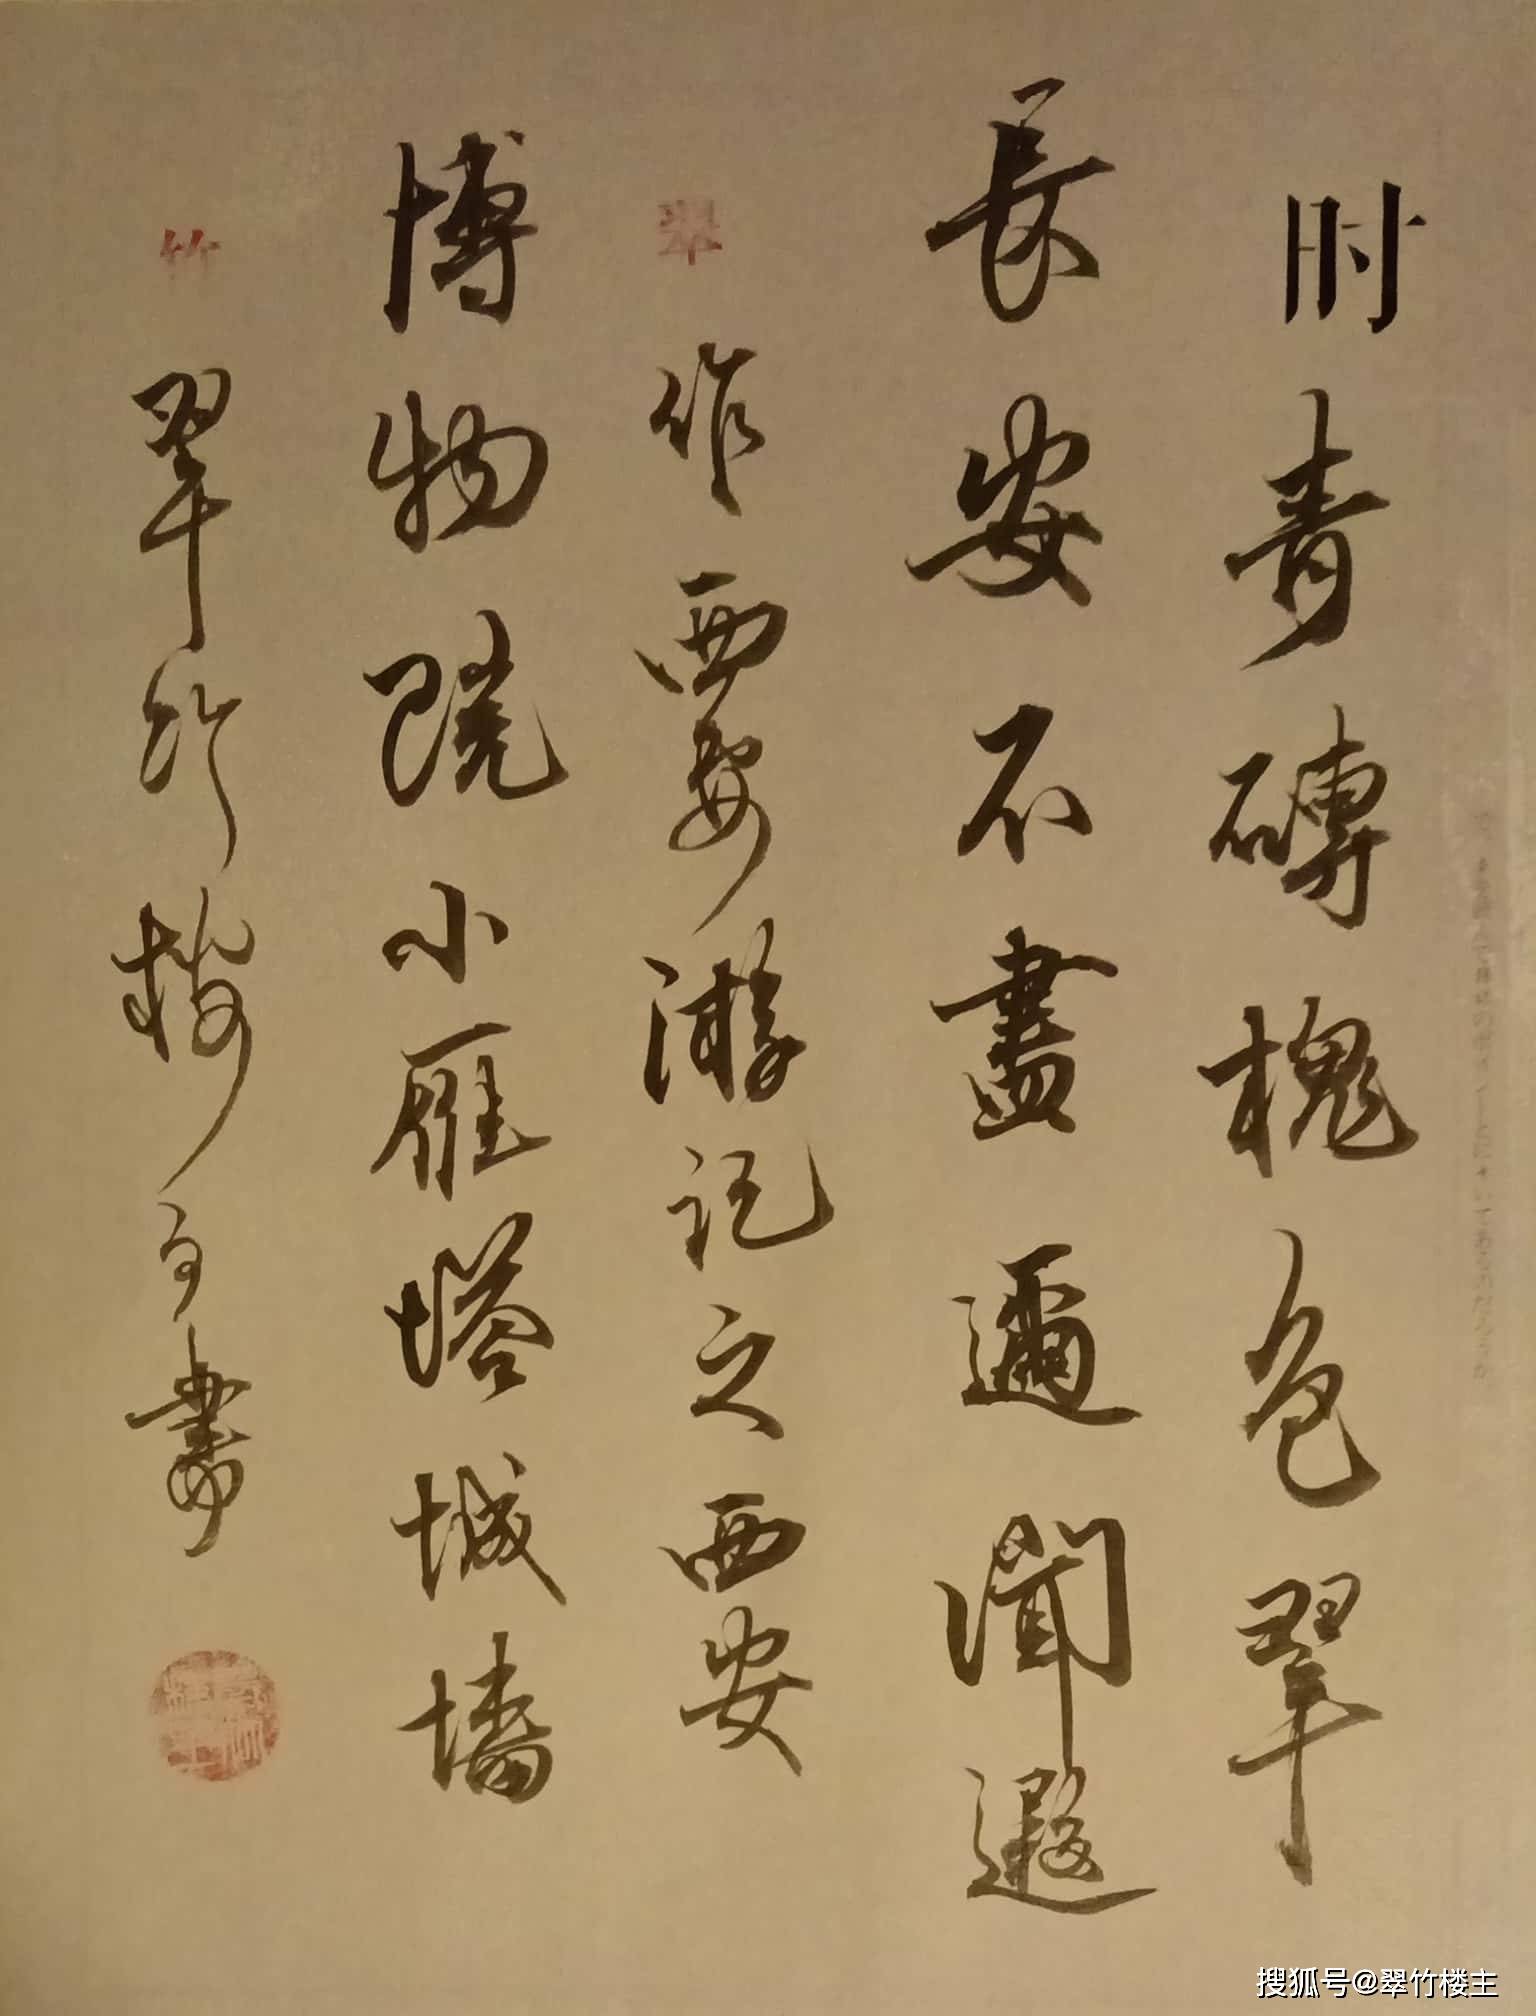 时青磚槐色翠
長安不盡邇聞遐
翠
作西安游记之西安
博物院小雁塔城墙
竹
翠竹楼書
搜狐号@翠竹楼主